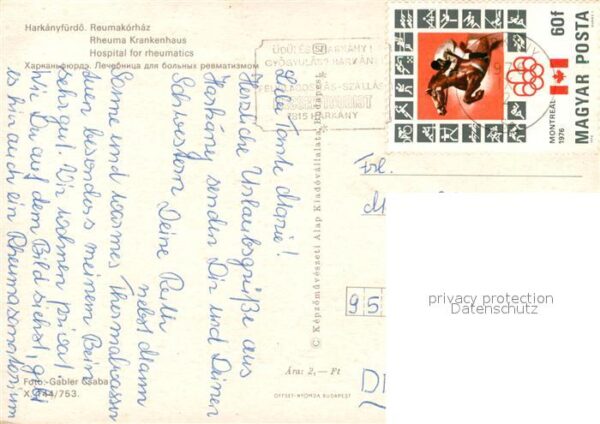 Harkányfürdő. Reumakórház
Rheuma Krankenhaus
Hospital for rheumatics
Харканьфюрдэ. Лечебница для больных ревматизмом
ÜDÜLÉS HARKÁNY!
GYÓGYULÁS HARKÁNY!
7815 HARKÁNY
60f
MAGYAR POSTA
MONTREAL-
1976
Liebe Tante Marie!
Herzliche Urlaubsgrüße aus
Harkány senden Dir und Deinen
Schwestern Deine
nebst Mann
Sonne und warmes Thermalwasser
tun besonders meinem Bein
sehr gut. Wir wohnen privat.
Wie Du auf dem Bild siehst, gibt
es hier auch ein Rheumasanatorium
© Képzőművészeti Alap Kiadóvállalata, Budapest
Frl.
M
95
D
privacy protection
Datenschutz
Foto: Gabler Csaba
X. 144/753.
Ára: 2,— Ft
OFFSET-NYOMDA BUDAPEST